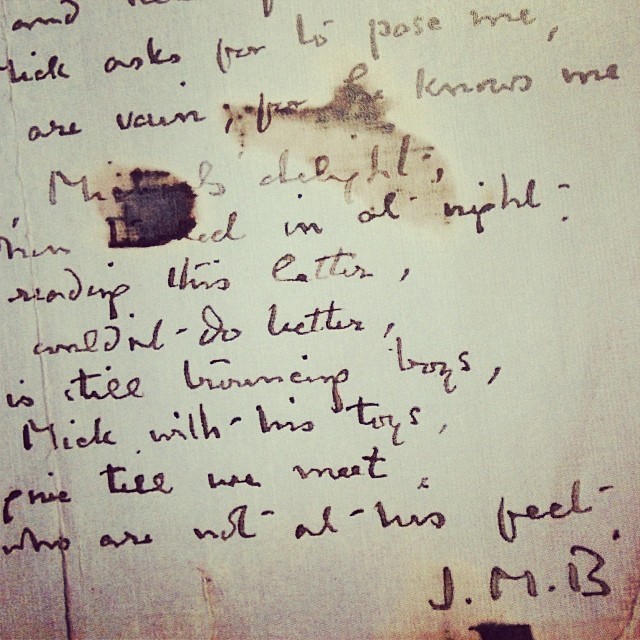 and
Mick asks for to pose me,
are vain ; for he knows me
delight ;
in at night :
reading this letter,
couldn't do better,
is still trouncing boys,
Mick with his toys,
till we meet
who are not at his feet.
J.M.B